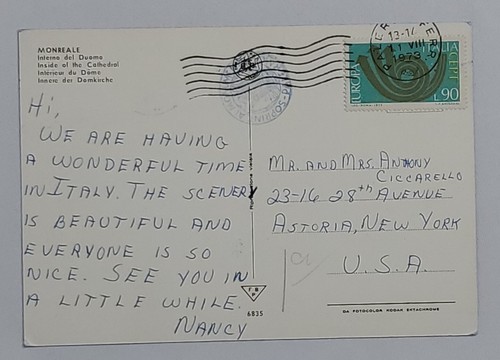 MONREALE
Interno del Duomo
Inside of the Cathedral
Intérieur du Dôme
Innere der Domkirche
Hi,
WE ARE HAVING
A WONDERFUL TIME
IN ITALY. THE SCENERY
IS BEAUTIFUL AND
EVERYONE IS SO
NICE. SEE YOU IN
A LITTLE WHILE.
NANCY
13-14
VIII
1973
EUROPA
ITALIA
CEPT
L.90
MR. AND MRS. ANTHONY
CICCARELLO
23-16 28th AVENUE
ASTORIA, NEW YORK
U.S.A.
6835
DA FOTOCOLOR KODAK EKTACHROME